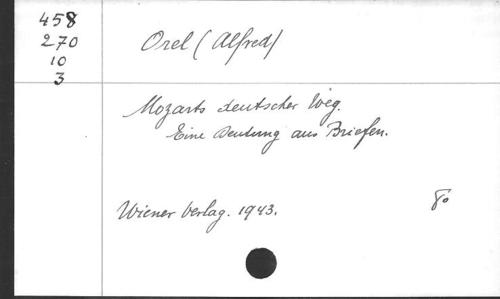 458
270
10
3
Orel (Alfred)
Mozarts deutscher Weg.
Eine Deutung aus Briefen.
Wiener Verlag. 1943.
8o